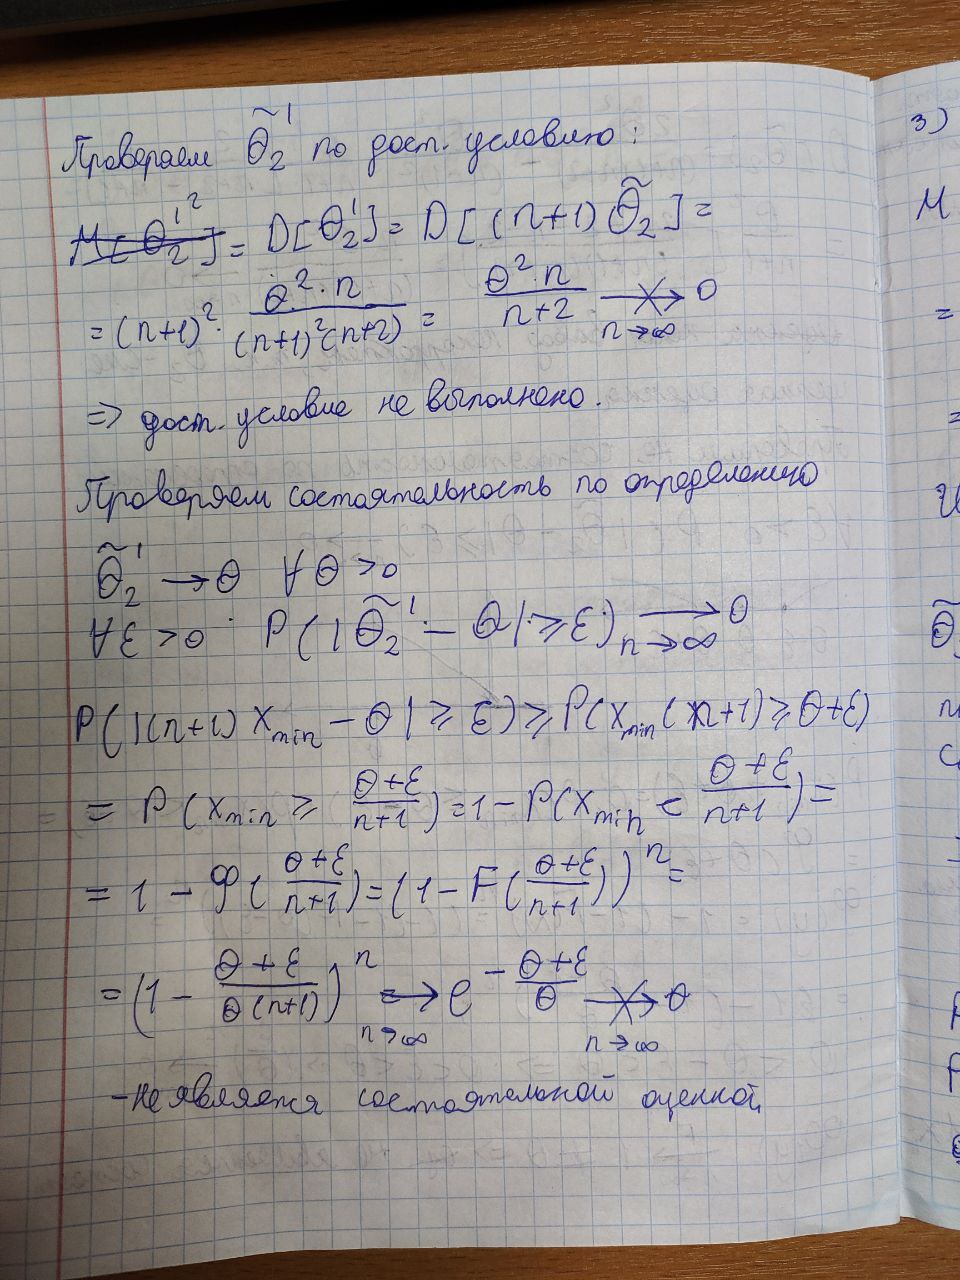 Провераем θ̃₂' по дост. условию:
M[θ₂'²] = D[θ₂'] = D[(n+1) θ̃₂] =
= (n+1)² · θ²·n / (n+1)²(n+2) = θ²·n / n+2 ↛ 0 n→∞
=> дост. условие не выполнено.
Проверяем состоятельность по определению
θ̃₂' → θ ∀θ>0
∀ε>0 P(|θ̃₂' - θ| ≥ ε) → 0 n→∞
P(|(n+1) x_min - θ| ≥ ε) ≥ P(x_min(n+1) ≥ θ+ε)
= P(x_min ≥ θ+ε / n+1) = 1 - P(x_min < θ+ε / n+1) =
= 1 - φ(θ+ε / n+1) = (1 - F(θ+ε / n+1))ⁿ =
= (1 - θ+ε / θ(n+1))ⁿ → n→∞ e^(- θ+ε / θ) ↛ 0 n→∞
- Не является состоятельной оценкой
3)
M
=
=